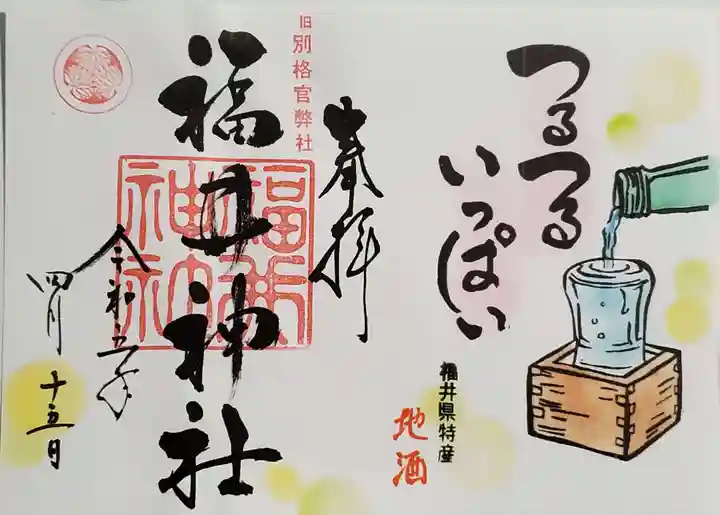 つるつる
いっぱい
福井県特産
地酒
奉拝
旧別格官幣社
福井神社
令和五年
四月十五日